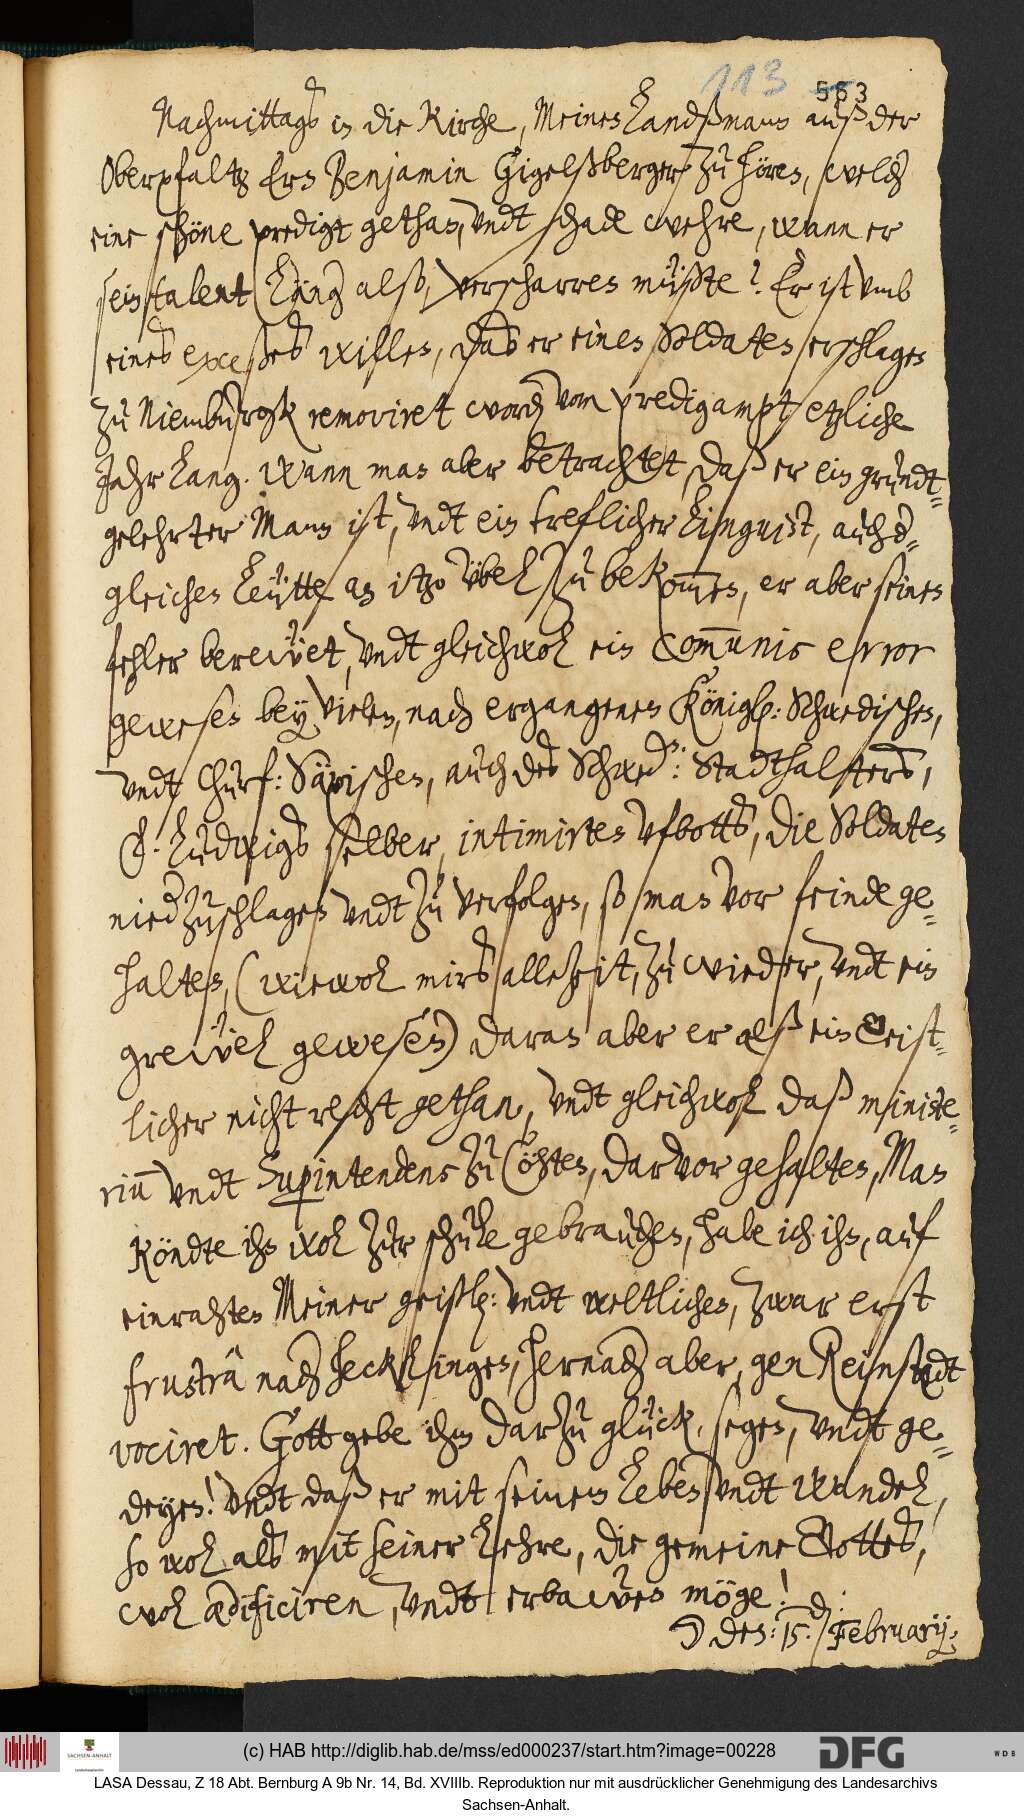 113 563
Nachmittags in die Kirche, Meines Landßmans auß der
Oberpfaltz Ern Benjamin Gigelßberger, zu hören, welch
eine schöne predigt gethan, undt schade wehre, wann er
sein talent länger also, verscharren müßte? Er ist umb
eines exceßes willen, das er einen Soldaten erschlagen
zu Niemburgk removiret word vom predigampt etzliche
Jahr lang. Wann man aber betrachtet, daß er ein gründt-
gelehrter Mann ist, undt ein treflicher Linguist, auch d-
gleichen leütte an itzo übel zu bekom̅en, er aber seinen
fehler berewet, undt gleichwol ein com̅unis error
gewesen bey vielen, nach ergangenen Königl: Schwedischen,
undt Churf: Säxischen, auch des Schwed: Stadthalters,
F. Ludwigs selber, intimirten ufbotts, die Soldaten
niedzuschlagen undt zu verfolgen, so man vor feinde ge-
halten, (wiewol mirs allezeit, zu wieder, undt ein
grewel gewesen) daran aber er alß ein Geist-
licher nicht recht gethan, undt gleichwol daß ministe-
riu̅ undt Supintendens zu Cöhten, darvor gehalten, Man
köndte ihn wol zur schule gebrauchen, habe ich ihn, auf
einrahten Meiner geistl: undt weltlichen, zwar erst
frustrâ nach Hecklingen, hernach aber, gen Reinstedt
vociret. Gott gebe ihm darzu glück, segen, undt ge-
deyen! undt daß er mit seinem Leben undt wandel,
so wol als mit seiner Lehre, die gemeine Gottes,
wol ædificiren, undt erbawen möge!
☽ den: 15. d: February;
(c) HAB http://diglib.hab.de/mss/ed000237/start.htm?image=00228
SACHSEN-ANHALT
DFG
WDB
LASA Dessau, Z 18 Abt. Bernburg A 9b Nr. 14, Bd. XVIIIb. Reproduktion nur mit ausdrücklicher Genehmigung des Landesarchivs
Sachsen-Anhalt.